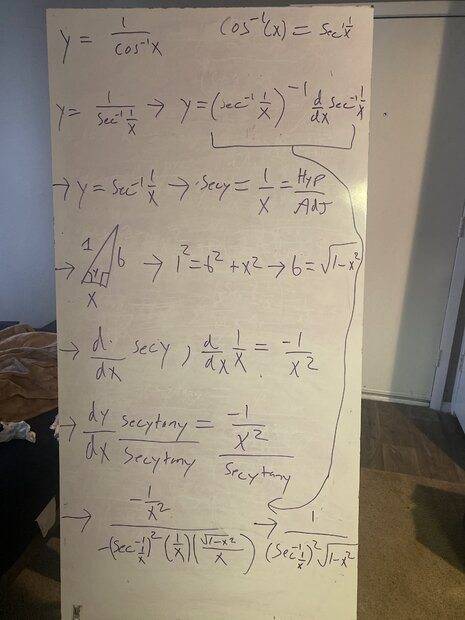 y = 1/cos⁻¹x   cos⁻¹(x) = sec⁻¹ 1/x
y = 1/(sec⁻¹ 1/x) → y = (sec⁻¹ 1/x)⁻¹ d/dx sec⁻¹ 1/x .
→ y = sec⁻¹ 1/x → secy = 1/x = Hyp/Adj
→ 1 y b x → 1² = b² + x² → b = √(1-x²)
→ d/dx secy , d/dx 1/x = -1/x²
→ dy/dx secytany/secytany = (-1/x²)/secytany
→ (-1/x²)/(-(sec⁻¹ 1/x)² (1/x)(√(1-x²)/x)) → 1/((sec⁻¹ 1/x)² √(1-x²))